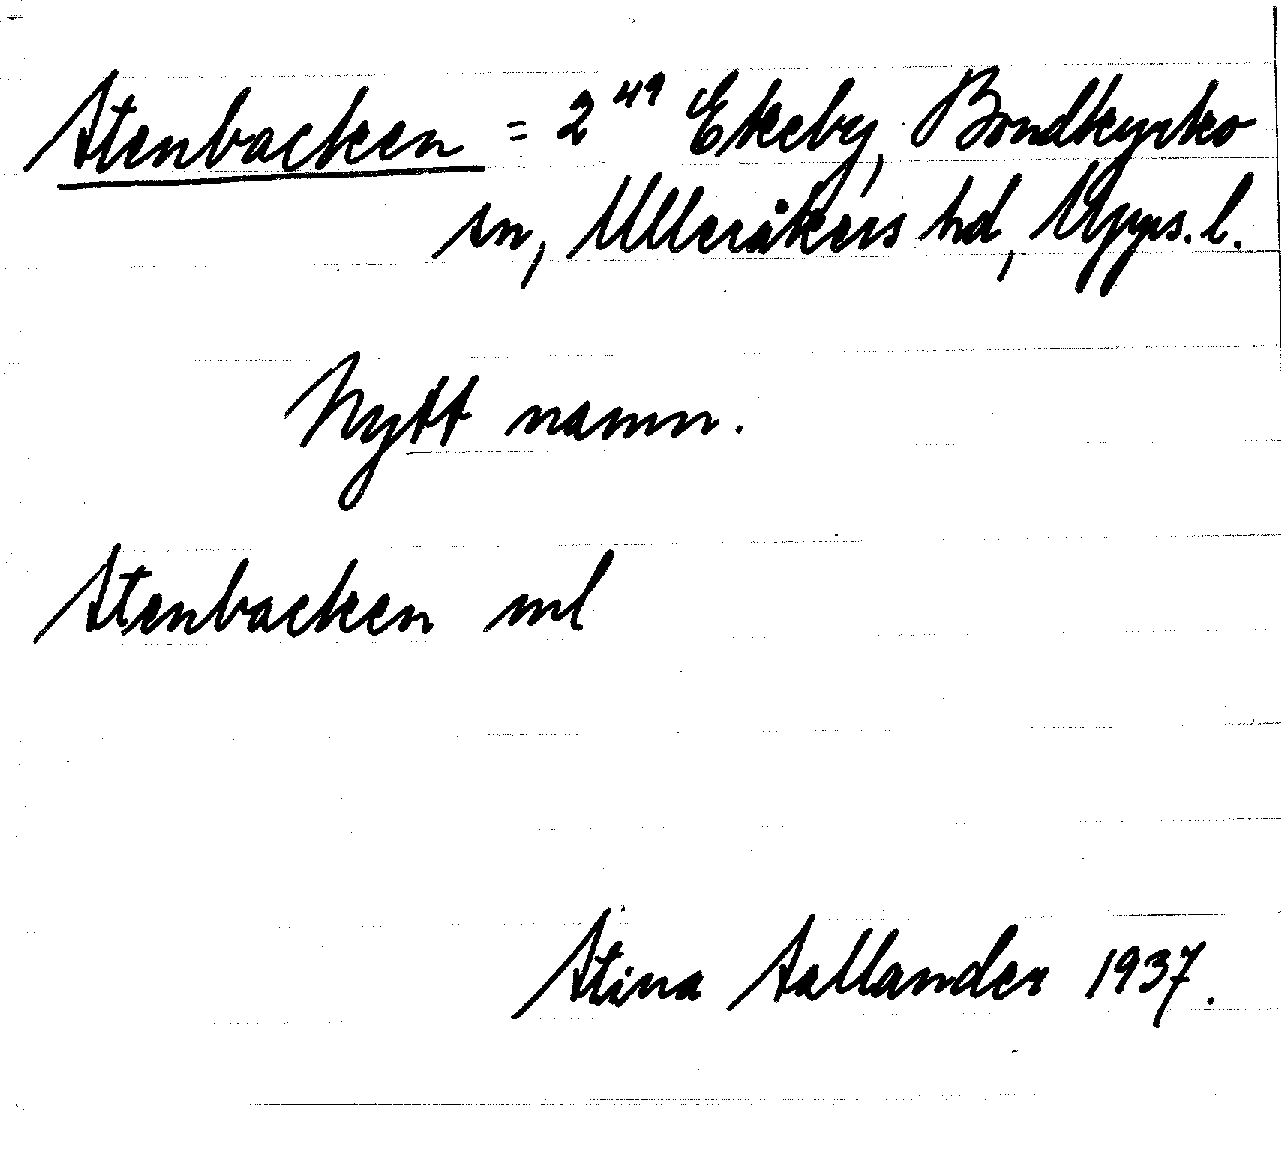 Stenbacken = 2⁴⁹ Ekeby, Bondkyrko
sn, Ulleråkers hd, Upps. l.
Nytt namn.
Stenbacken ml
Stina Sallander 1937.